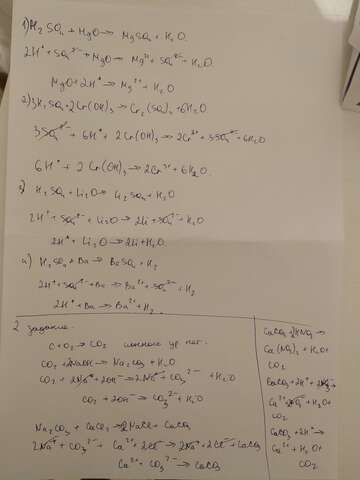 1) H2SO4 + MgO → MgSO4 + H2O.
2H⁺ + SO4²⁻ + MgO → Mg²⁺ + SO4²⁻ + H2O.
MgO + 2H⁺ → Mg²⁺ + H2O
2) 3H2SO4 + 2Cr(OH)3 → Cr2(SO4)3 + 6H2O
3SO4²⁻ + 6H⁺ + 2Cr(OH)3 → 2Cr³⁺ + 3SO4²⁻ + 6H2O
6H⁺ + 2Cr(OH)3 → 2Cr³⁺ + 6H2O.
3) H2SO4 + Li2O → Li2SO4 + H2O
2H⁺ + SO4²⁻ + Li2O → 2Li + SO4²⁻ + H2O
2H⁺ + Li2O → 2Li + H2O.
4) H2SO4 + Ba → BaSO4 + H2
2H⁺ + SO4²⁻ + Ba → Ba²⁺ + SO4²⁻ + H2
2H⁺ + Ba → Ba²⁺ + H2.
2 задание.
C + O2 → CO2 ионного ур нет.
CO2 + 2NaOH → Na2CO3 + H2O
CO2 + 2Na⁺ + 2OH⁻ → 2Na⁺ + CO3²⁻ + H2O
CO2 + 2OH⁻ → CO3²⁻ + H2O
Na2CO3 + CaCl2 → 2NaCl + CaCO3
2Na⁺ + CO3²⁻ + Ca²⁺ + 2Cl⁻ → 2Na⁺ + 2Cl⁻ + CaCO3
Ca²⁺ + CO3²⁻ → CaCO3
CaCO3 + 2HNO3 →
Ca(NO3)2 + H2O +
CO2
CaCO3 + 2H⁺ + 2NO3⁻ →
Ca²⁺ + 2NO3⁻ + H2O +
CO2.
CaCO3 + 2H⁺ →
Ca²⁺ + H2O +
CO2.